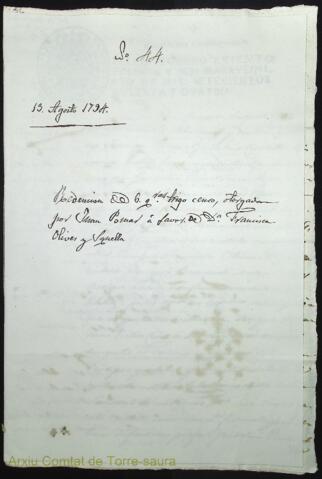 Nº 44.
13. Agosto 1794.
Redencion de 6. qnes trigo censo, otorgada
por Juan Pomar á favor de Dª Francisca
Olives y Squella
Arxiu Comtat de Torre-saura